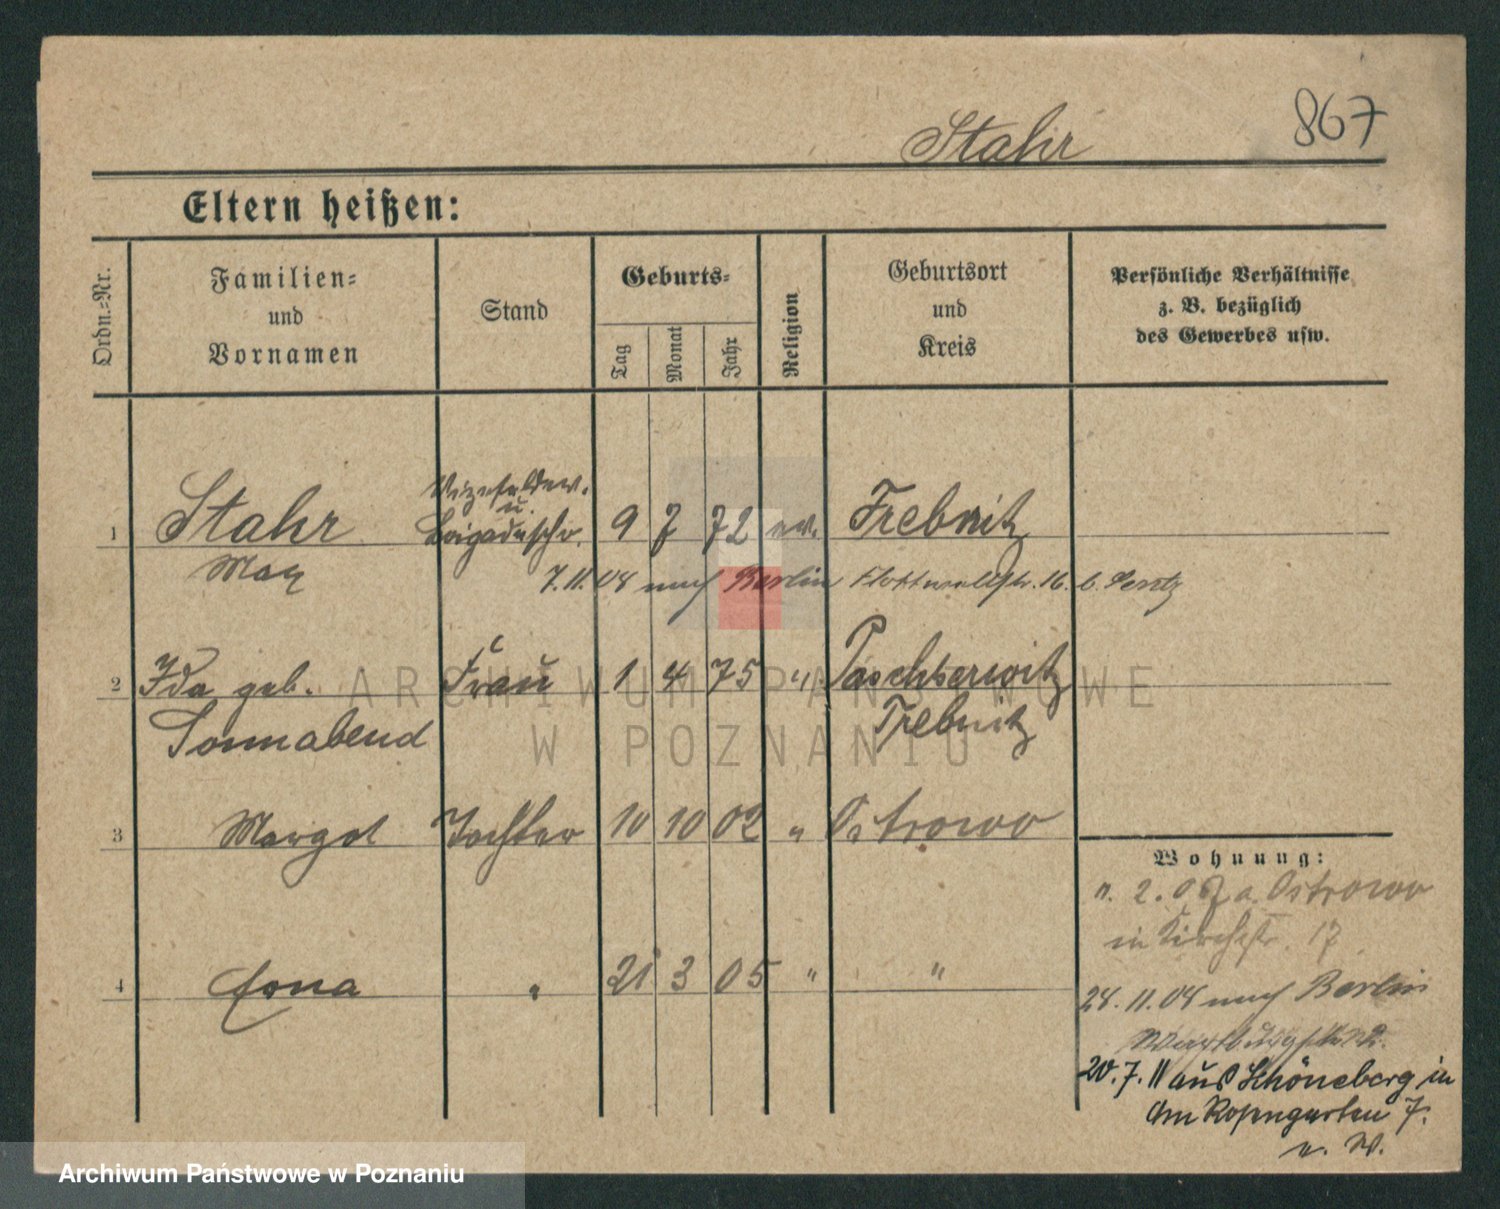 867
Stahr
Eltern heißen:
Ordn.-Nr.
Familien- und Vornamen
Stand
Geburts-
Tag
Monat
Jahr
Religion
Geburtsort und Kreis
Persönliche Verhältnisse z. B. bezüglich des Gewerbes usw.
Vizefeldw.
u.
1 Stahr Brigadeschr. 9 7 72 ev. Trebnitz
Max
7.11.08 nach Berlin Flottwellstr. 16. b.
2 Ida geb. Frau 1 4 75 " Paschkerwitz
Sonnabend Trebnitz
3 Margot Tochter 10 10 02 " Ostrowo
4 Erna " 21 3 05 " "
Wohnung:
2. 07 a. Ostrowo
in Kirchstr. 17
28.11.08 nach Berlin
Wartburgstr.
20.7.11 aus Schöneberg in
Am Rosengarten 7.
v. W.
ARCHIWUM PAŃSTWOWE
W POZNANIU
Archiwum Państwowe w Poznaniu